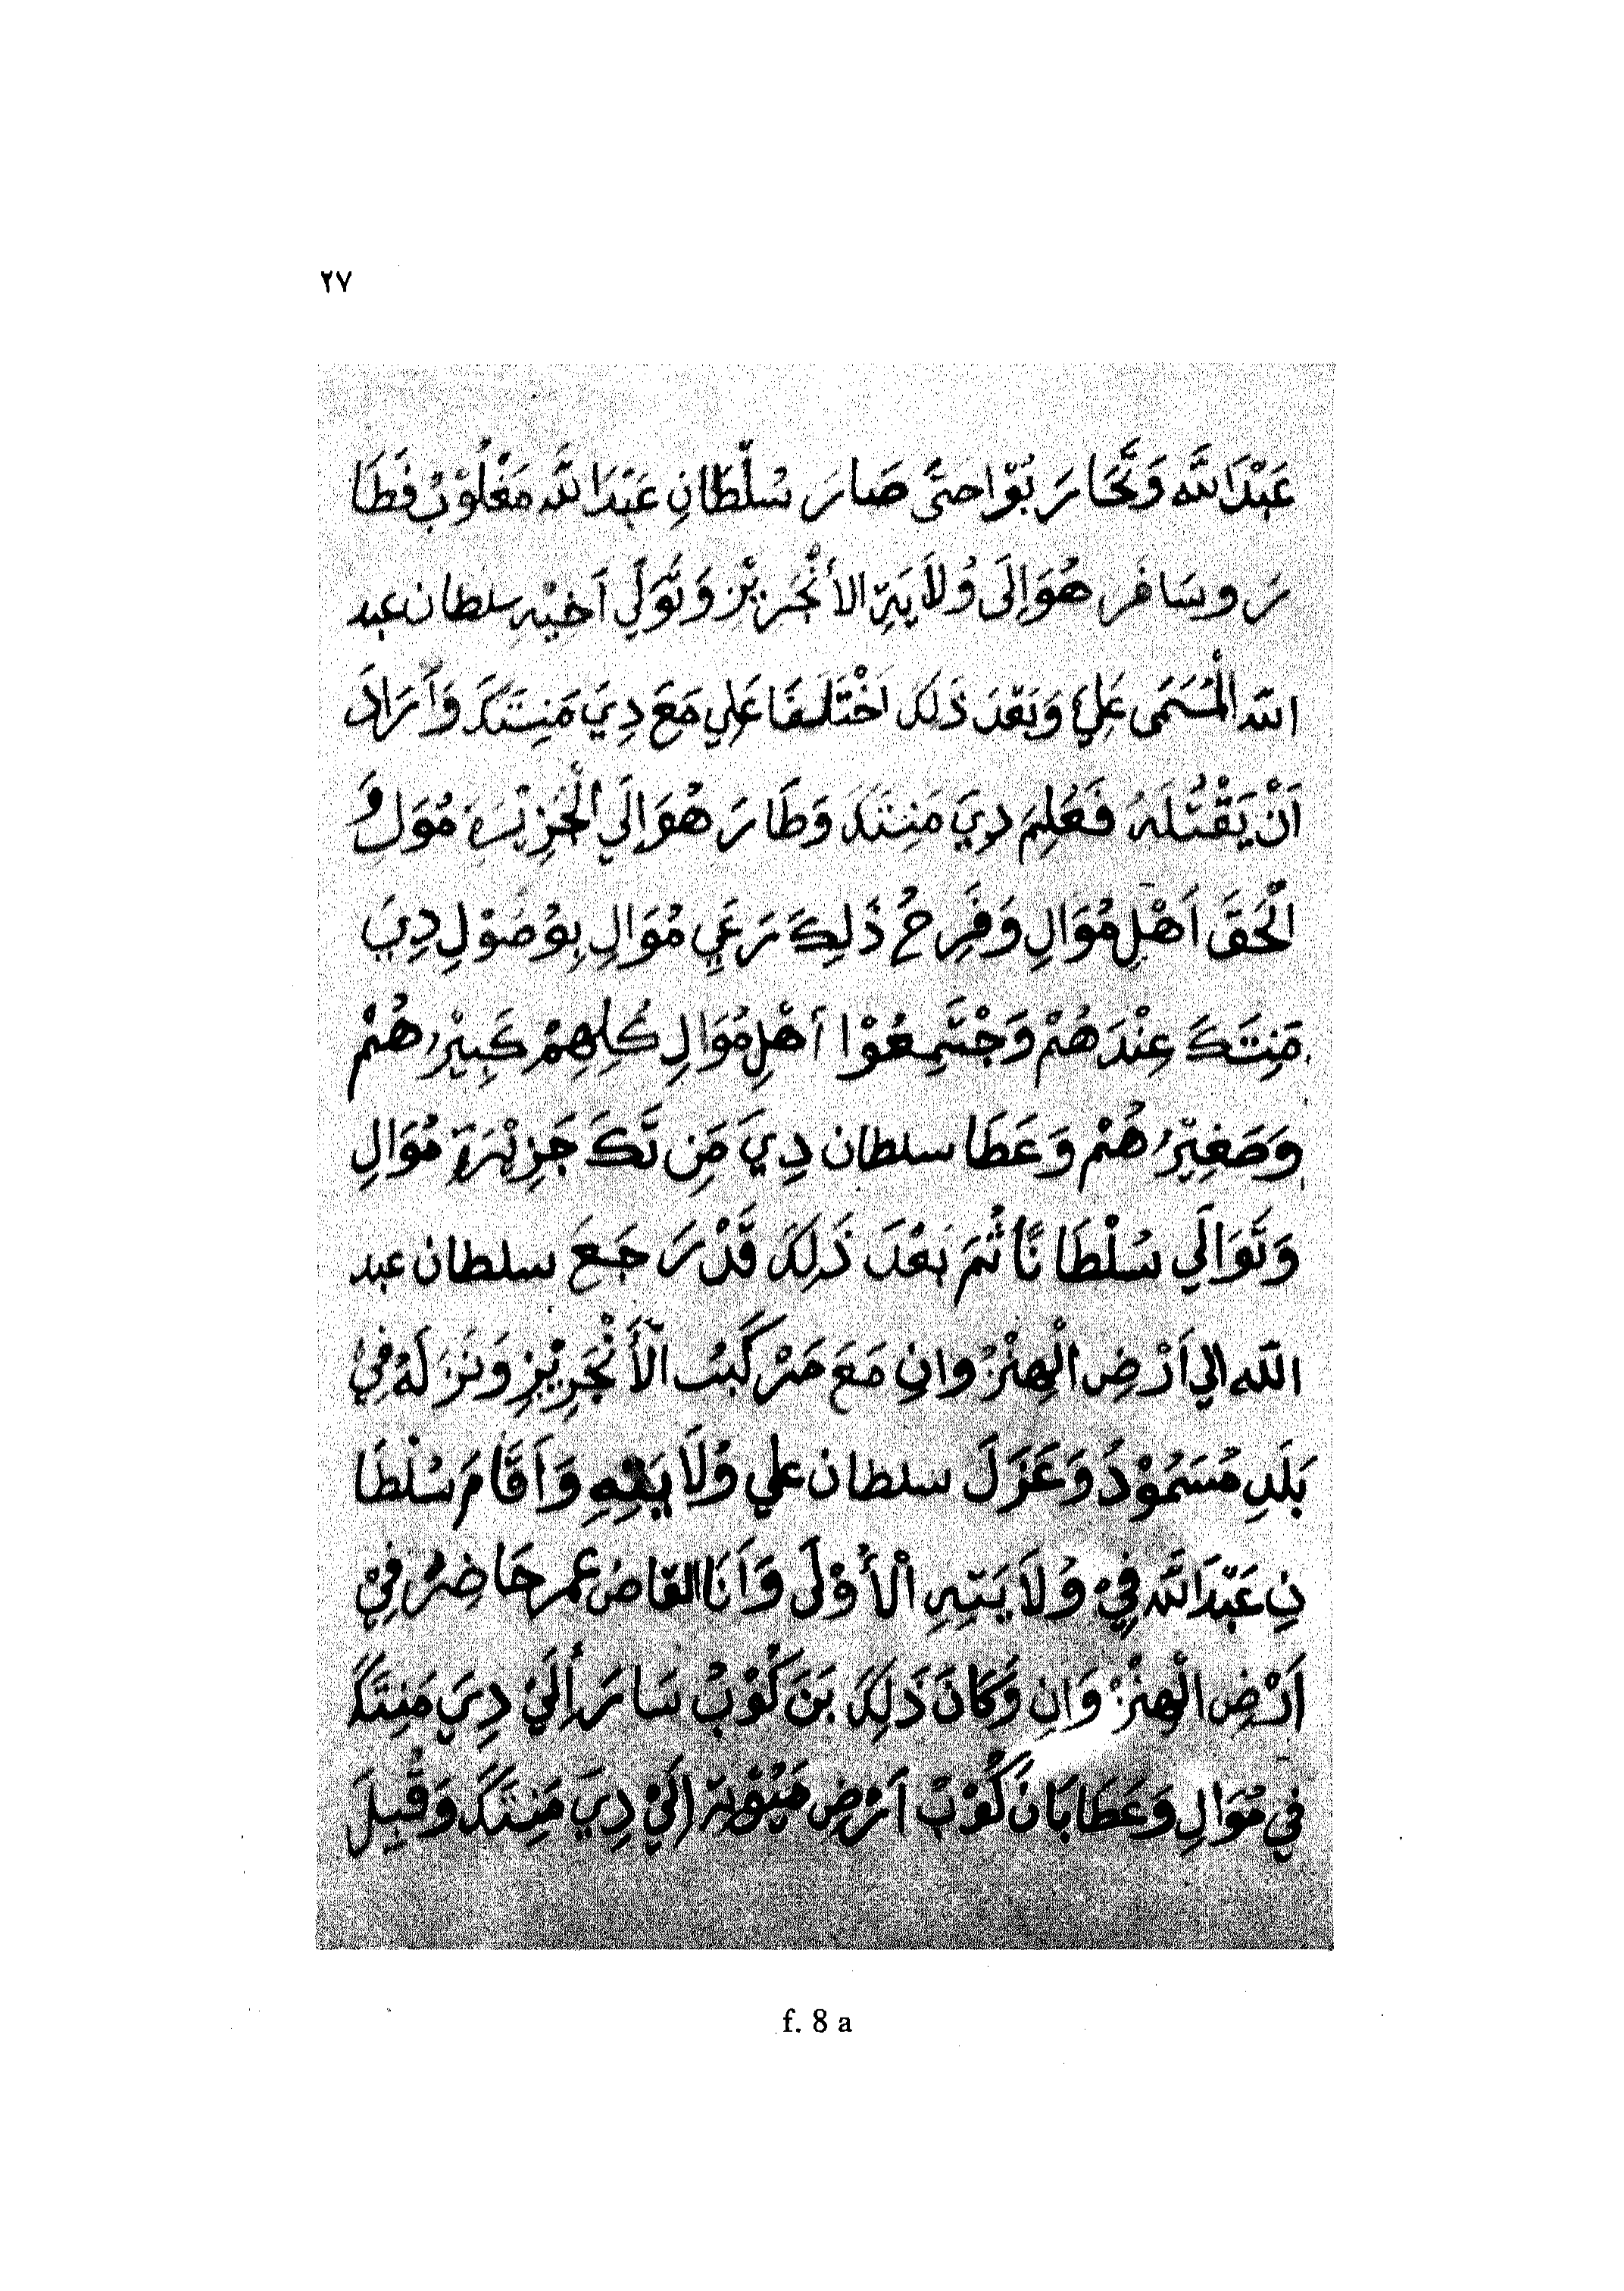 ٢٧
عَبْدَاللَّه وَتَّحَارَبُوّا حَتَّى صَارَ سُلْطَانِ عَبْدَاللَّه مَغْلُوْبُ فَطَا
رَ وسَافَر هُوَ إِلَى وُلَايَةِ الأَنْجَرِيْز وَتُّوَلِّي أَخِيْهِ سلطان عبد
الله الْمُسَمَى عَلِيْ وَبَعْدَ ذَلِكَ اخْتَلَفَا عَلِي مَعَ دِيَ مَنِتَكَ وَأَرَادَ
اَنْ يَقْتُلَهُ فَعُلِمَ دِيَ مَنِتَكَ وَطَارَ هُوَ إِلَي الْجَزِيْرَةِ مُوَلِ وُ
الْحَقَ اَهْلِ مُوَالِ وَفَرِحُ ذَلِكَ رَعَيِ مُوَالِ بِوُصُوْلِ دِيَ
مَنِتَكَ عِنْدَ هُمْ وَجْتَمِعُوْا أَهْلِ مُوَالِ كُلِهِمْ كَبِيْرُ هُمْ
وَصَغِيْرُ هُمْ وَعَطَا سلطان دِيَ مَنِ تَّكَ جَزِيْرَةَ مُوَالِ
وَتَّوَالَي سُلْطَانًا ثُمَ بَعْدَ ذَلِكَ قَدْ رَجَعَ سلطان عبد
الله الي اَرْضِ الْهِنْزُوانِ مَعَ مَرْكَبُ الْأَنْجَرِيْزِ وَنَزَلَهُ فِيْ
بَلَدِ مُسَمُوْدُ وَعَزَلَ سلطان علي وُلَايَتِهِ وَاَقَّامَ سُلْطَا
نِ عَبْدَاللَّه فِيْ وُلَايَتِهِ الْأُوْلَى وَاَنَا القاضِ عمر حَاضِرُ فِيْ
اَرْضِ الْهِنْزُوَانِ وَكَانَ ذَلِكَ بَنَ كُوْبُ سَارَ إِلَيْ دِيَ مَنِتَكَ
فِي مُوَالِ وَعَطَا بَانَ كُوْبُ اَرْضِ إِلَيْ دِيَ مَنِتَكَ وَقُبِلَ
f. 8 a